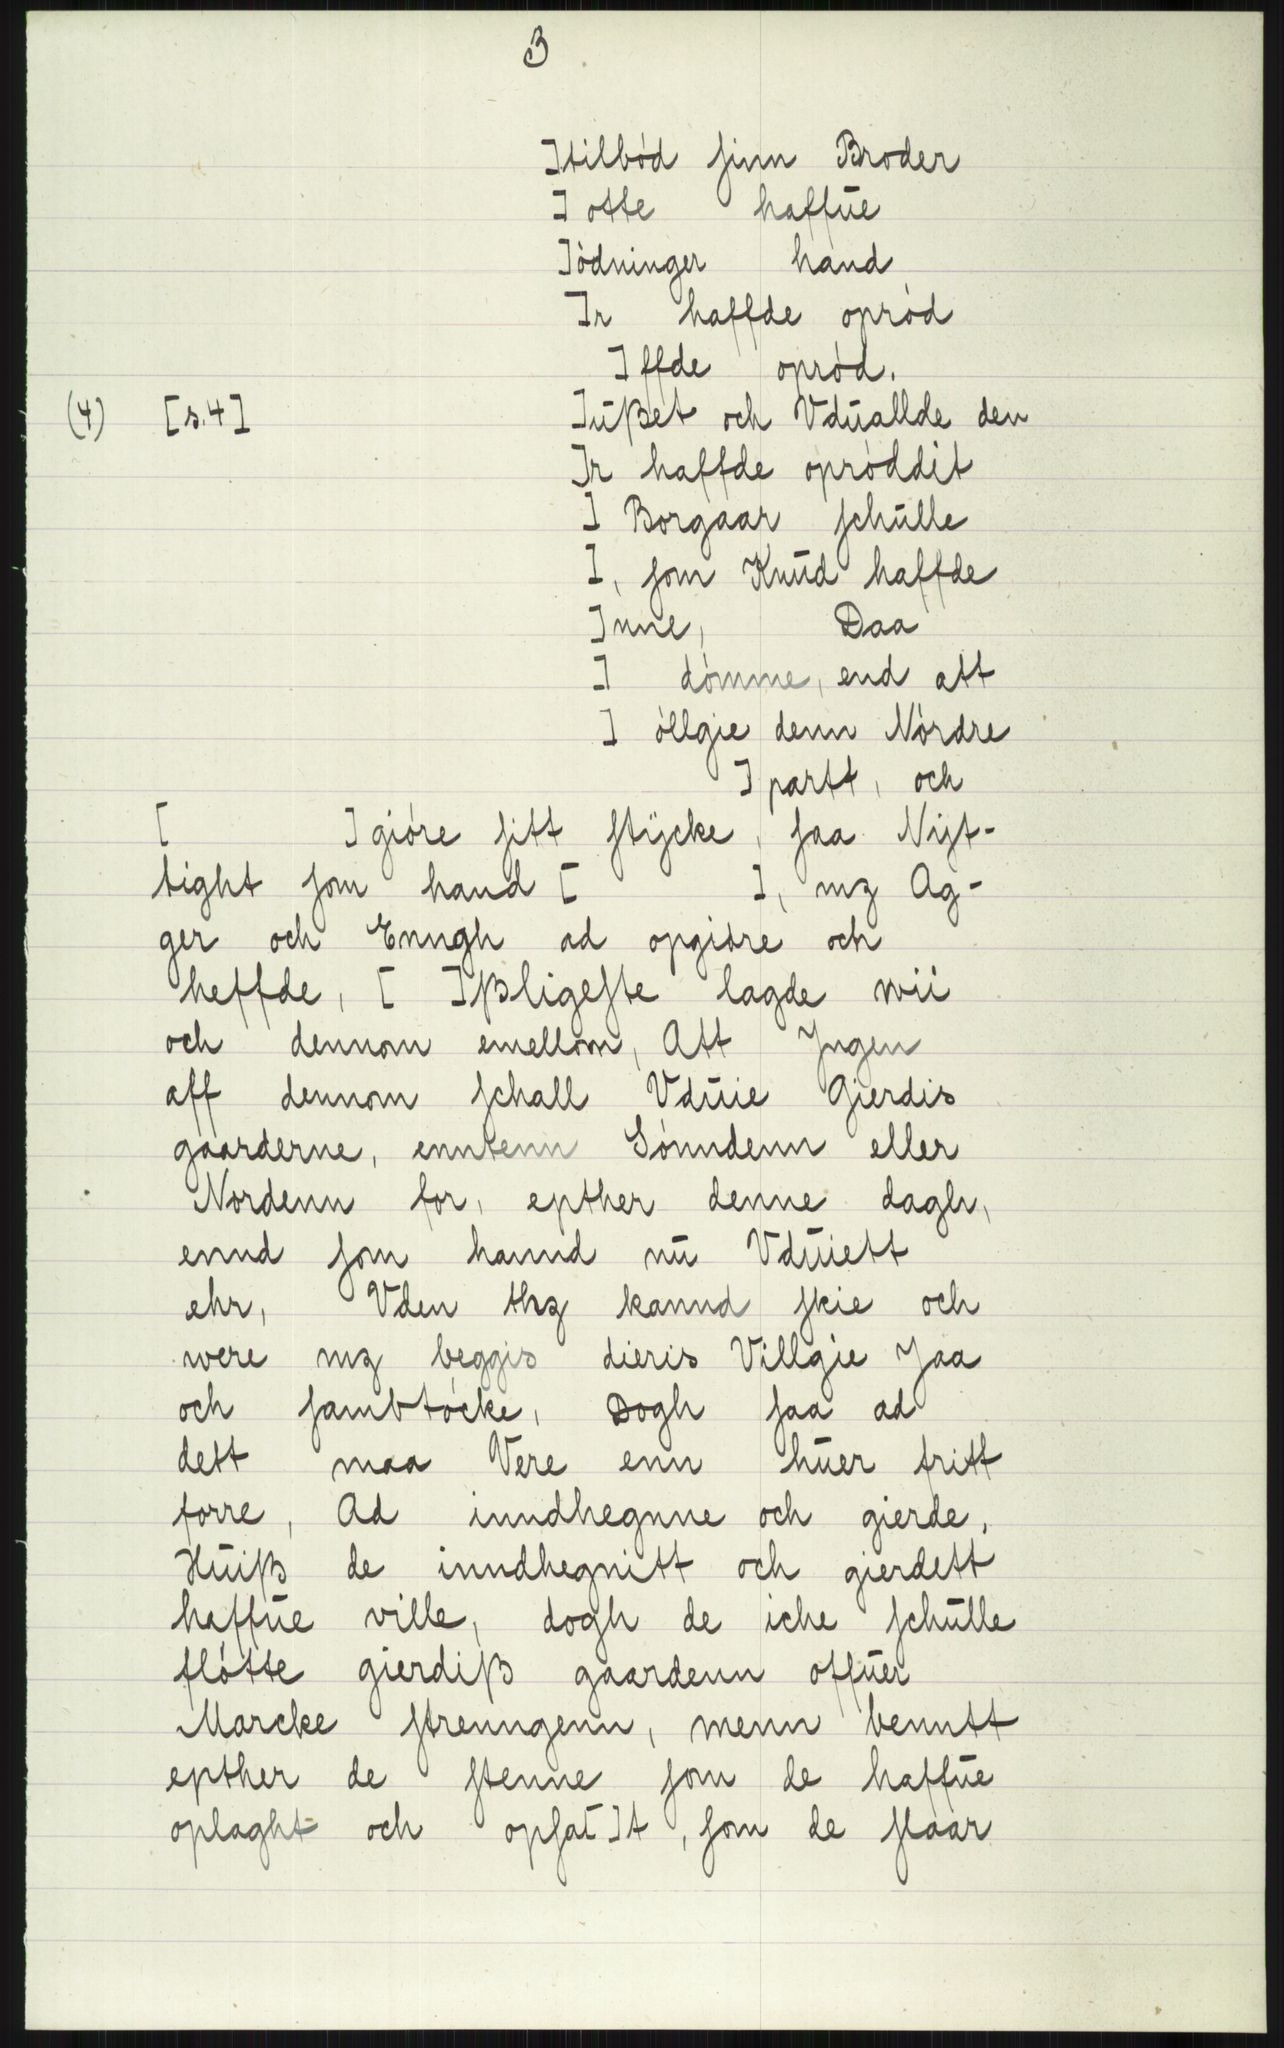 3
]tilbód sinn Broder
] otte haffūe
]ódninger hand
]r haffde opród
]ffde opród.
(4) [s.4] ]ūßet och Vdūallde den
]r haffde opróddit
] Borgaar schūlle
], som Knūd haffde
]nne, Daa
] dómme, end att
] óllgie denn Nórdre
] partt, och
[ ]gióre sitt stÿcke, saa Nÿt-
tight som hand [ ], mz Ag-
ger och Enngh ad opgióre och
heffde, [ ]ßligeste lagde wii
och dennom emellom, Att Jngen
aff dennom schall Vdūie Gierdis
gaarderne, enntenn Sónndenn eller
Nordenn for, epther denne dagh,
ennd som hannd nū Vdūiett
ehr, Vden thz kannd skie och
were mz beggis dieris Villgie Jaa
och sambtócke, Dogh saa ad
dett maa Vere enn hūer fritt
forre, Ad inndhegnne och gierde,
Hūiß de inndhegnitt och gierdett
haffūe ville, dogh de iche schūlle
flótte gierdiß gaardenn offūer
Marcke strenngenn, menn benntt
epther de stenne som de haffūe
oplaght och opsat[ ]t, som de staar